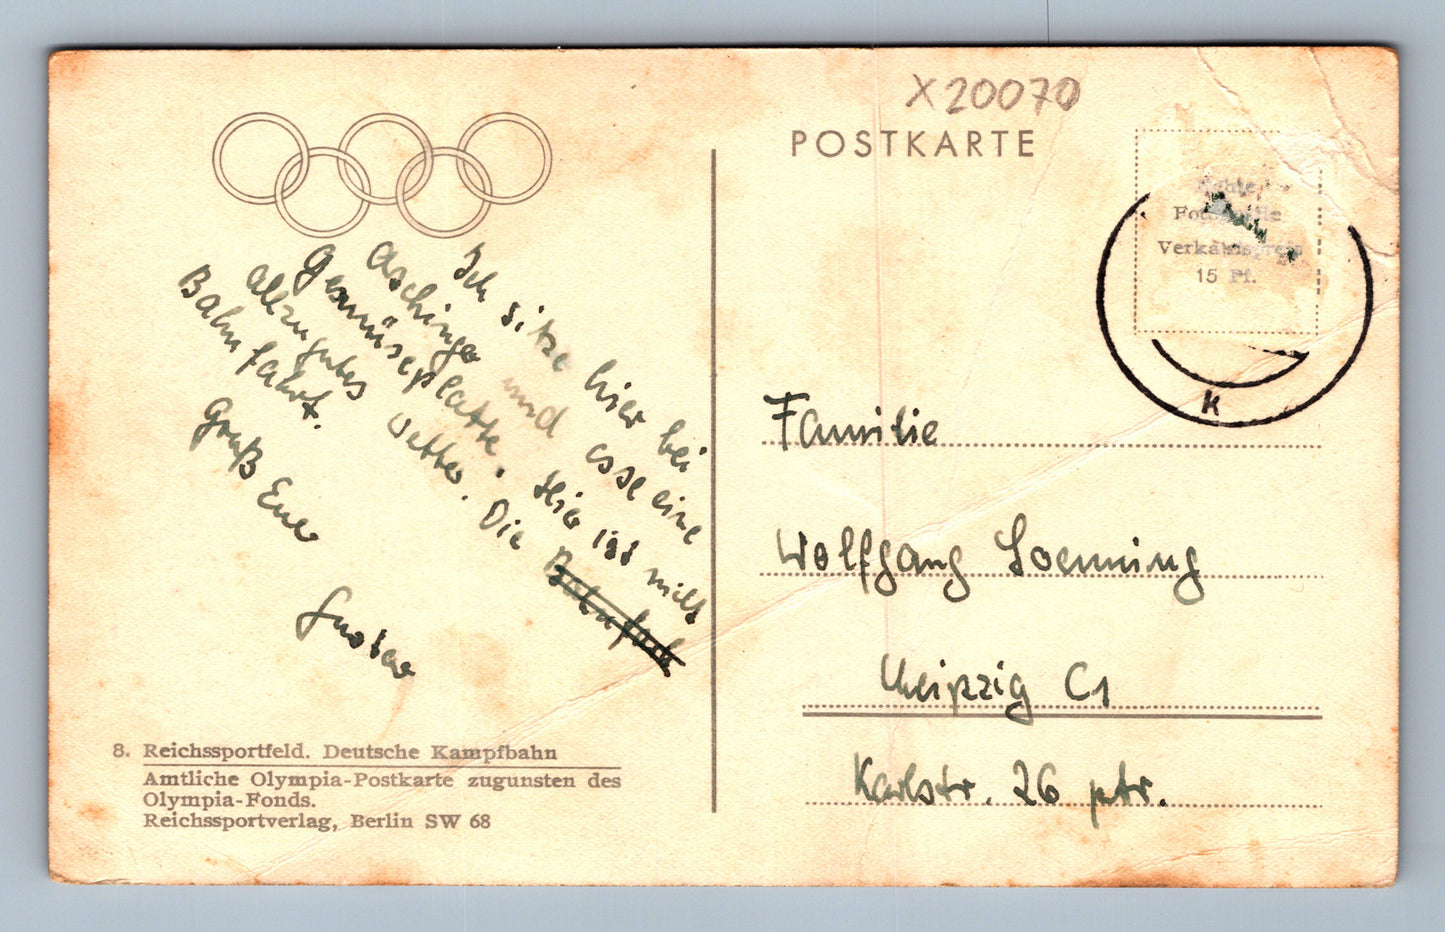 X20070
POSTKARTE
Verkaufspreis
15 Pf.
Ich sitze hier bei
Aschinger und esse eine
Gemüseplatte. Hier ist nicht
allzugutes Wetter. Die
Bahnfahrt.
Gruß Euer
Gustav
Familie
Wolfgang Loenning
Leipzig C1
Karlstr. 26 ptr.
K
8. Reichssportfeld. Deutsche Kampfbahn
Amtliche Olympia-Postkarte zugunsten des
Olympia-Fonds.
Reichssportverlag, Berlin SW 68